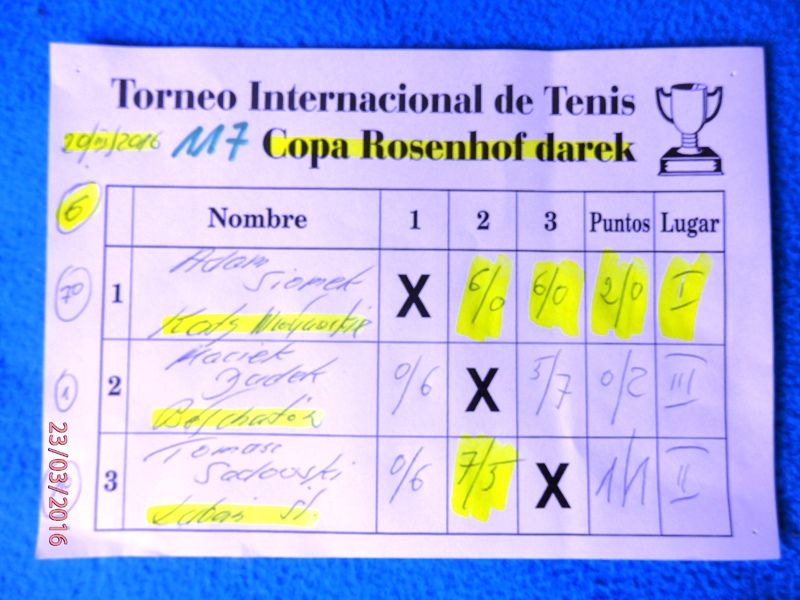 Torneo Internacional de Tenis
20/III/2016 117 Copa Rosenhof darek
6
Nombre 1 2 3 Puntos Lugar
70 1 Adam Siomek X 6/0 6/0 2/0 I
1 2 Maciek Dudek 0/6 X 5/7 0/2 III
Bełchatów
3 Tomasz Sadowski 0/6 7/5 X 1/1 II
Lubań Śl.
23/03/2016